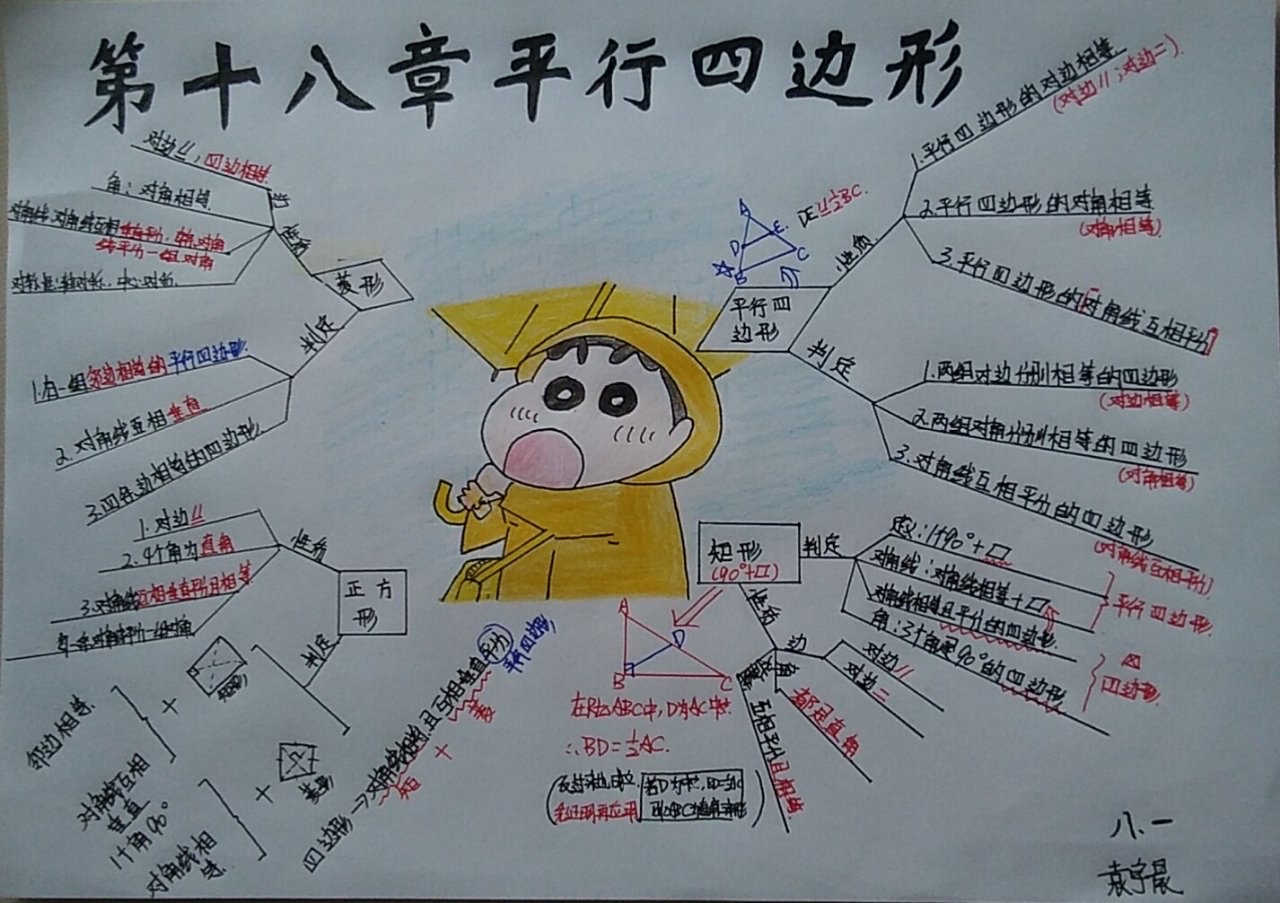 第十八章平行四边形
对边∥，四边相等
边
角：对角相等
对角线：对角线互相垂直平分，每条对角
线平分一组对角
对称性：轴对称、中心对称
性质
菱形
判定
1.有一组邻边相等的平行四边形
2.对角线互相垂直
3.四条边相等的四边形
△
A
D
E
B
C
DE∥=½BC.
平行四
边形
性质
1.平行四边形的对边相等
(对边∥；对边=)
2.平行四边形的对角相等
(对角相等)
3.平行四边形的对角线互相平分
判定
1.两组对边分别相等的四边形
(对边相等)
2.两组对角分别相等的四边形
(对角相等)
3.对角线互相平分的四边形
(对角线互相平分)
正方
形
性质
1.对边∥
2.4个角为直角
3.对角线互相垂直平分且相等
判定
邻边相等
对角线互相
垂直
+
1个角90°
对角线相
等
+
菱形
四边形→对角线相等且互相垂直平分
矩+菱
平行四边形
矩形
(90°+▱)
判定
定义：1个90°+▱
对角线：对角线相等+▱
对角线相等且平分的四边形
角：3个角是90°的四边形
平行四边形
四边形
性质
边
对边∥
对边=
角
都是直角
互相平分且相等
A
B
C
D
在Rt△ABC中，D为AC中点
∴BD=½AC.
八.一
袁宇晨